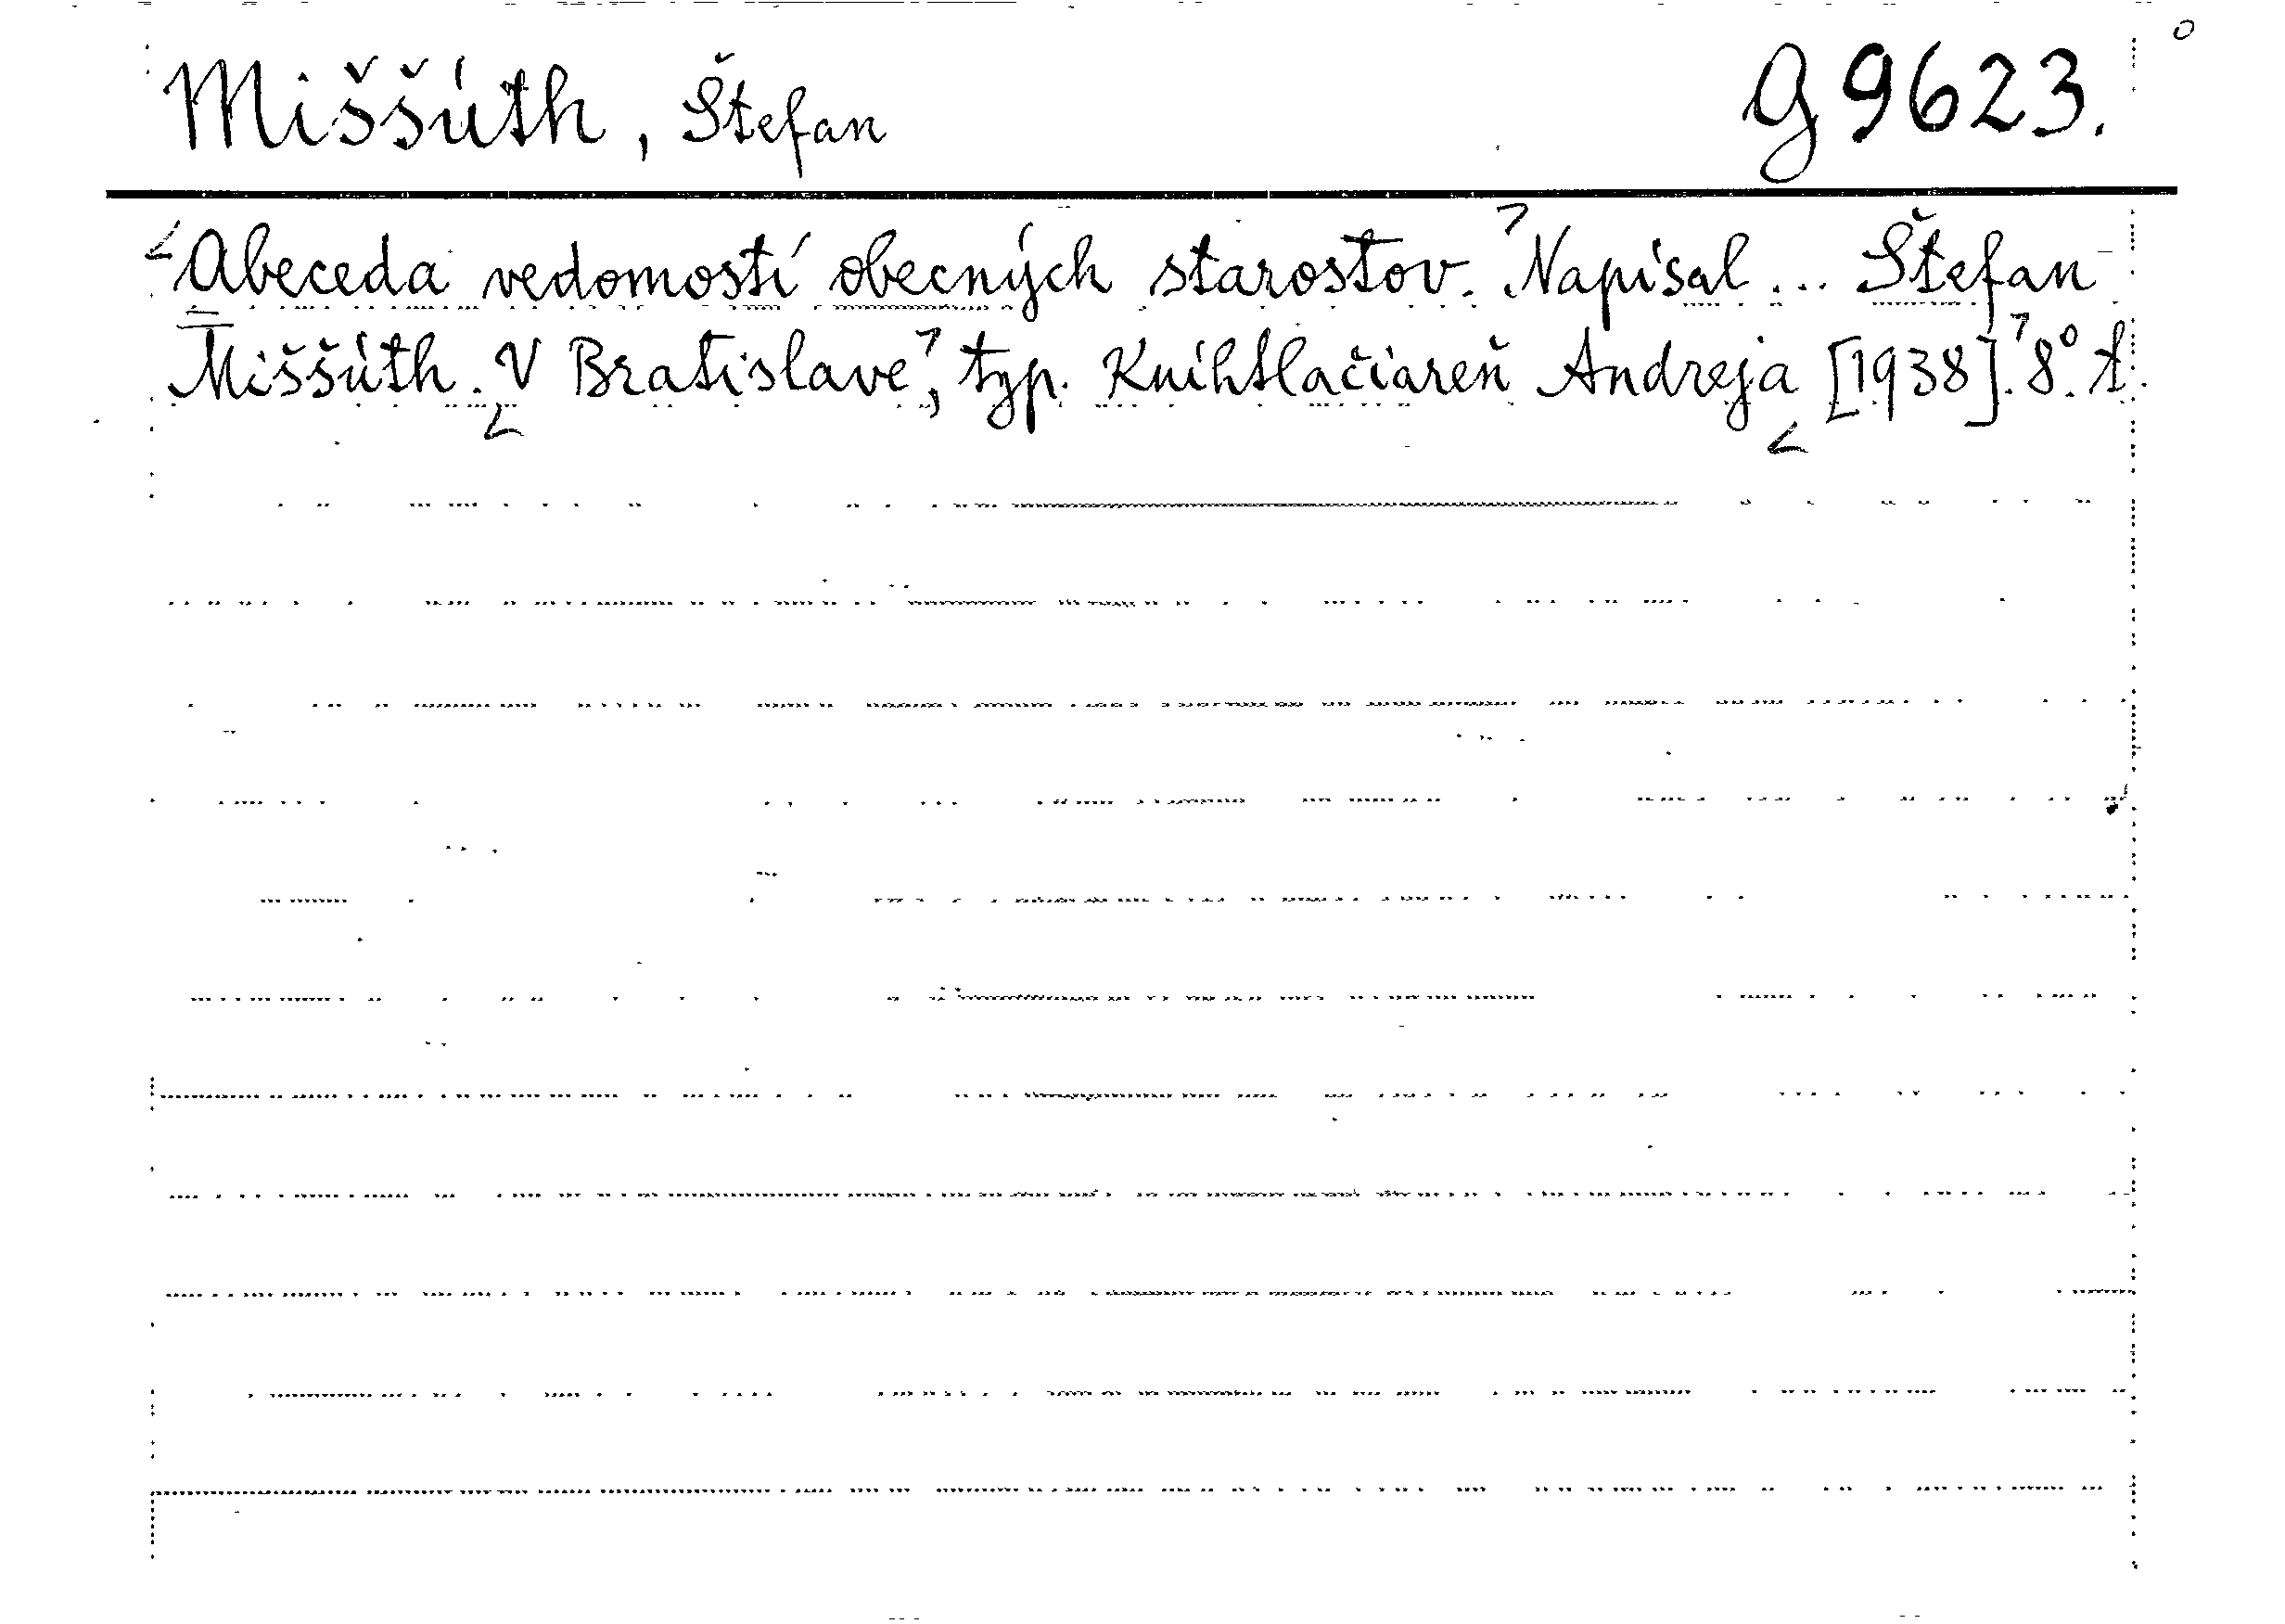 Miššúth, Štefan G 9623.
Abeceda vedomostí obecných starostov. Napísal ... Štefan
Miššúth. V Bratislave, typ. Kníhtlačiareň Andreja [1938]. 8° t.